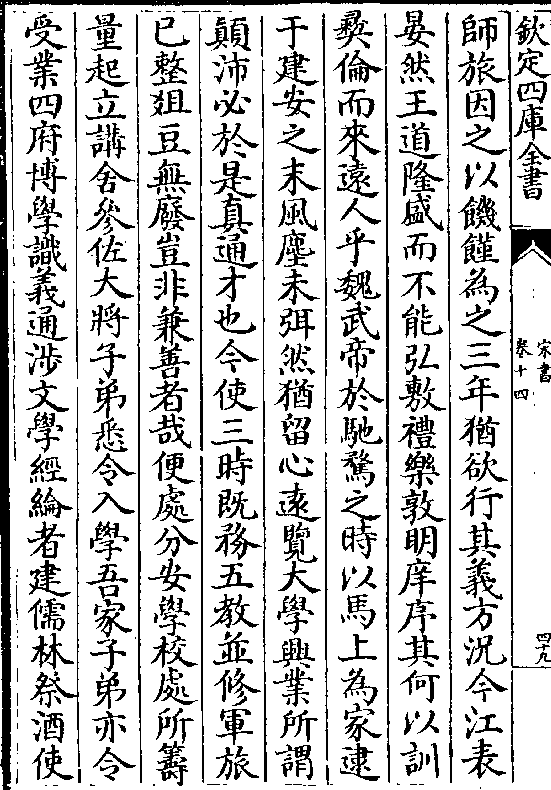 欽定四庫全書
宋書
卷十四
四十九
師旅因之以饑饉為之三年猶欲行其義方況今江表
晏然王道隆盛而不能弘敷禮樂敦明庠序其何以訓
彞倫而來遠人乎魏武帝於馳騖之時以馬上為家逮
于建安之末風塵未弭然猶留心遠覽大學興業所謂
顛沛必於是真通才也今使三時既務五教並修軍旅
已整俎豆無廢豈非兼善者哉便處分安學校處所籌
量起立講舍參佐大將子弟悉令入學吾家子弟亦令
受業四府博學識義通涉文學經綸者建儒林祭酒使